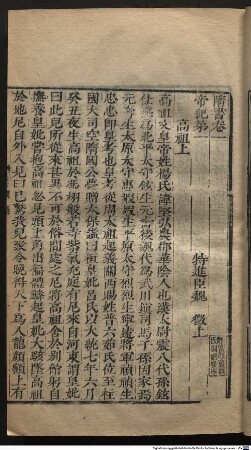 隋書卷一
帝紀第一　特進臣魏　徵上
高祖上
高祖文皇帝姓楊氏諱堅弘農郡華陰人也漢太尉震八代孫鉉
仕燕為北平太守鉉生元壽後魏代為武川鎮司馬子孫因家焉
元壽生太原太守惠嘏嘏生平原太守烈烈生寧遠將軍禎禎生
忠忠即皇考也皇考從周太祖起義關西賜姓普六茹氏位至柱
國大司空隋國公薨贈太保諡曰桓皇妣呂氏以大統七年六月
癸丑夜生高祖於馮翊般若寺紫氣充庭有尼來自河東謂皇妣
曰此兒所從來甚異不可於俗間處之尼將高祖舍於別館躬自
撫養皇妣嘗抱高祖忽見頭上角出徧體鱗起皇妣大駭墜高祖
於地尼自外入見曰已驚我兒致令晚得天下為人龍頷額上有